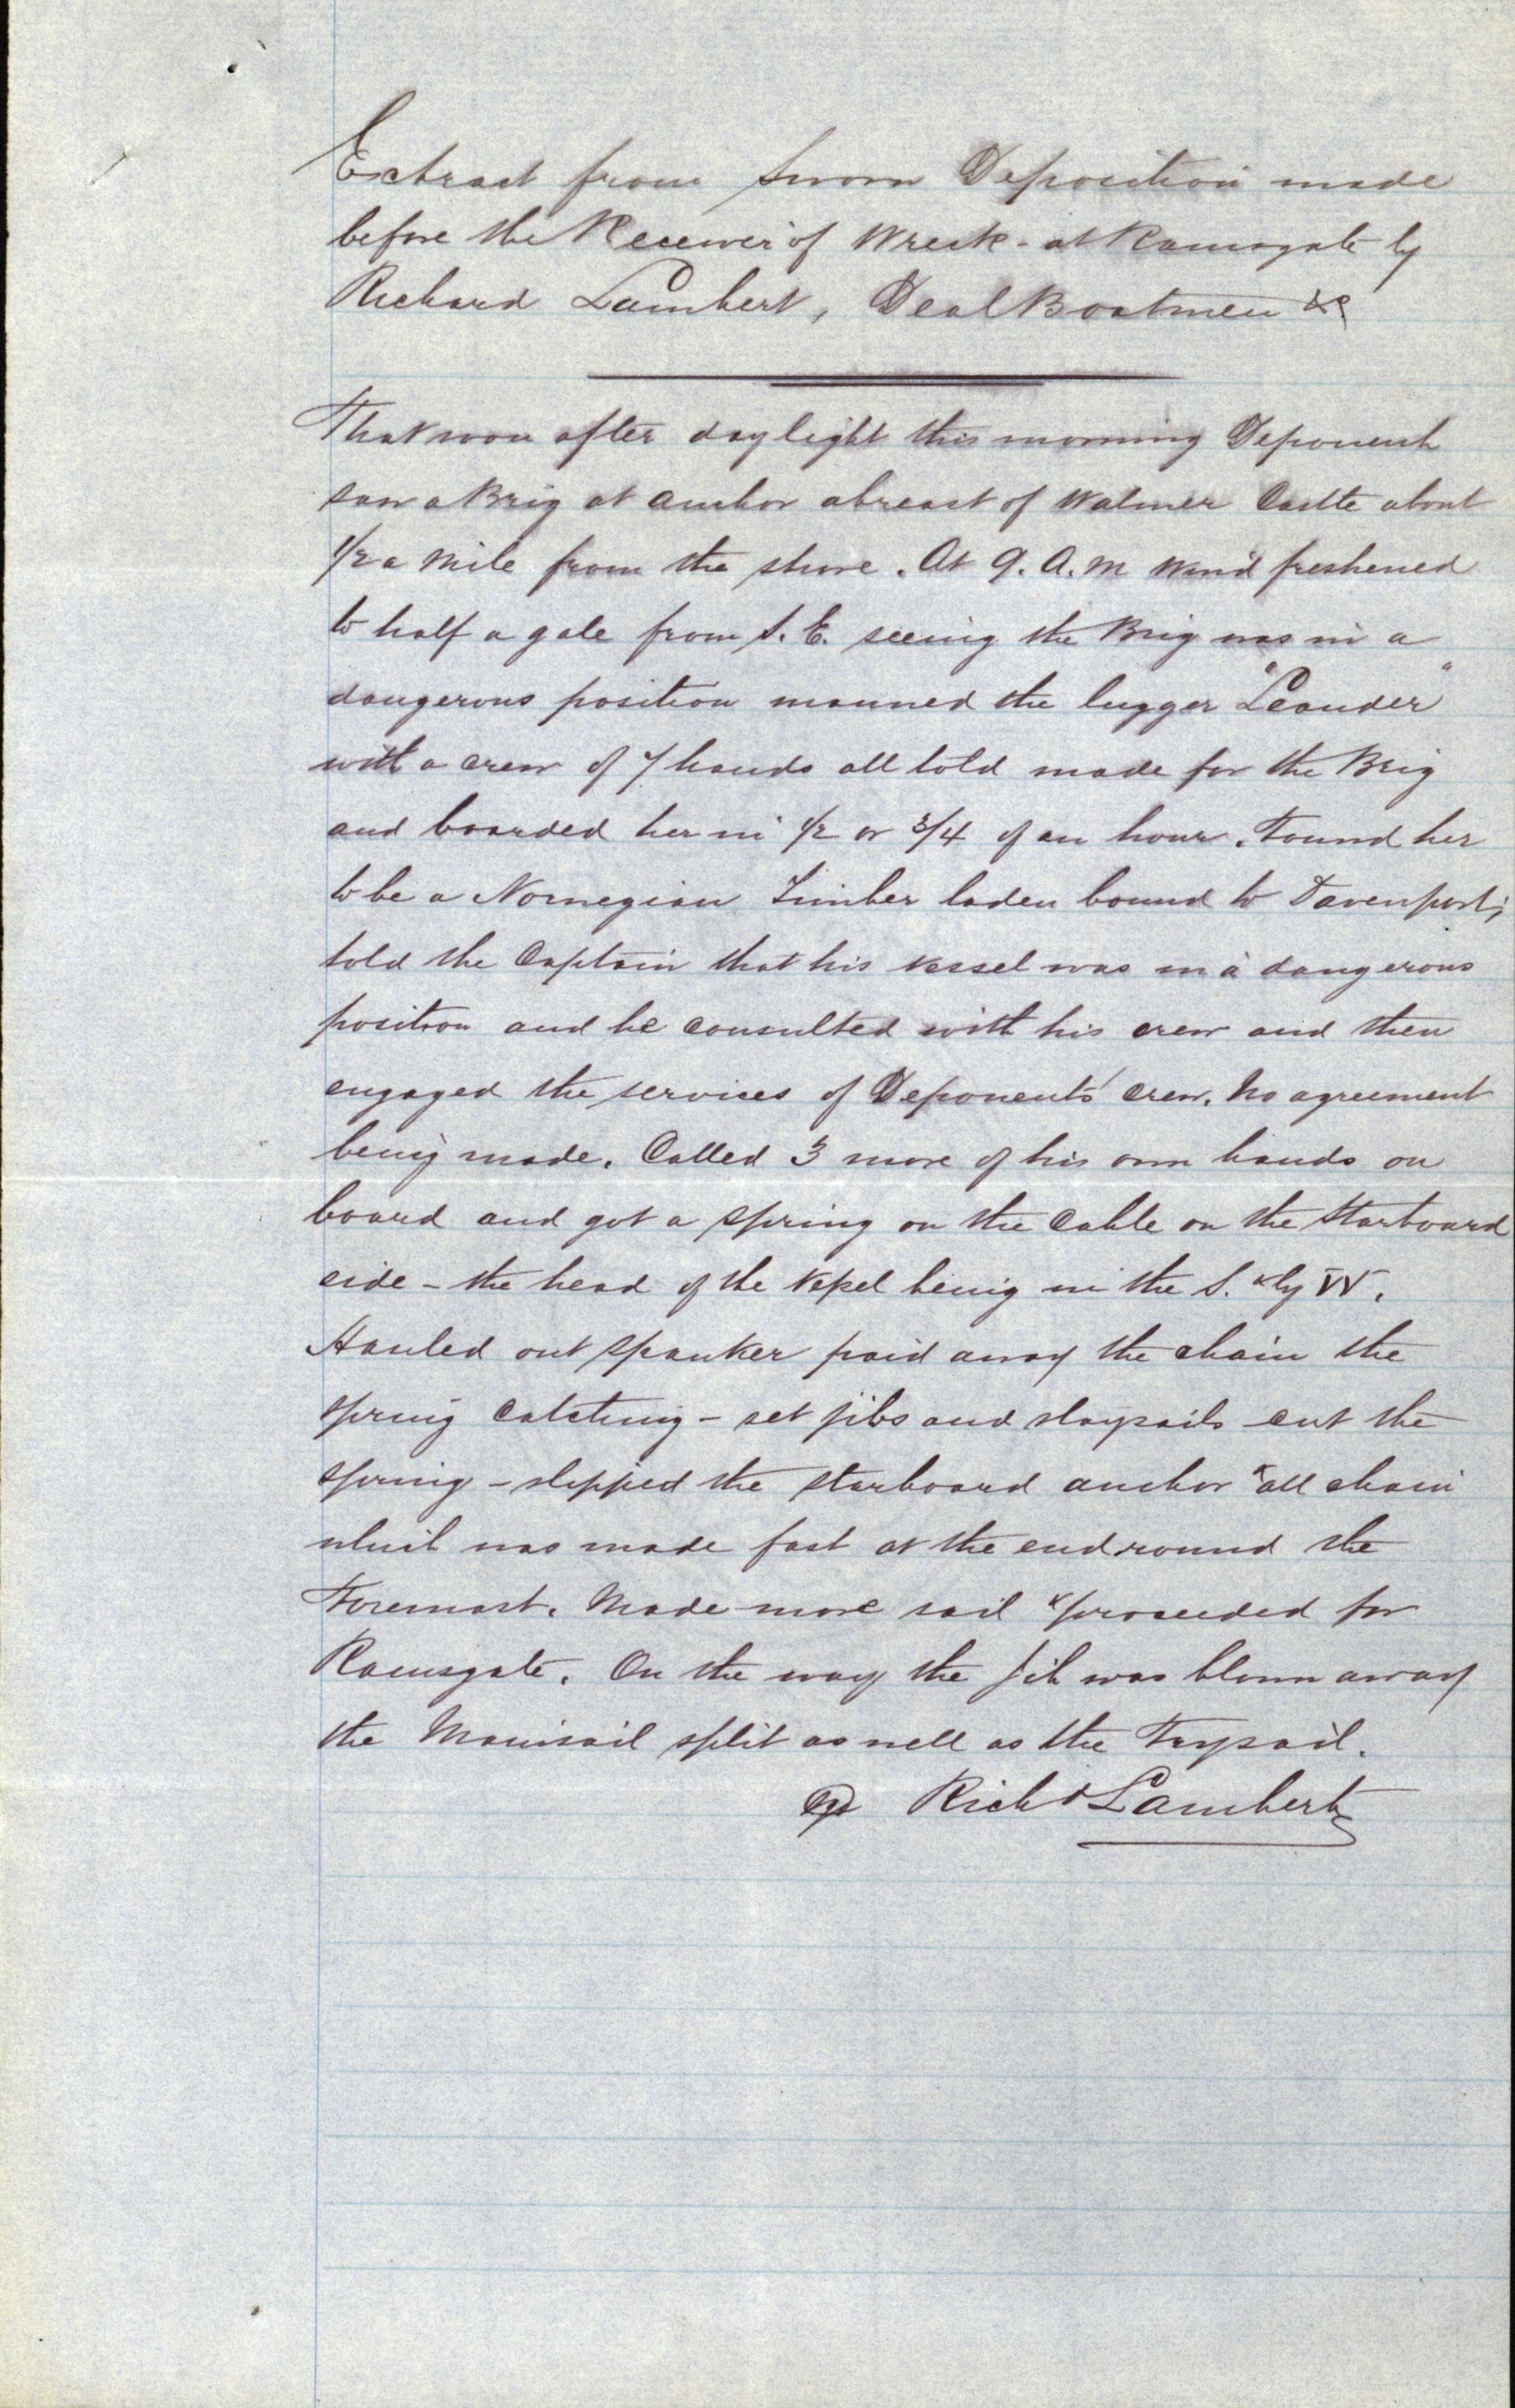 Extract from Sworn Deposition made
before the Receiver of Wreck - at Ramsgate by
Richard Lambert, Deal Boatmen &c
That soon after daylight this morning Deponent
saw a Brig at anchor abreast of Walmer Castle about
1/2 a mile from the shore. At 9. A.M Wind freshened
to half a gale from S.E. seeing the Brig was in a
dangerous position manned the lugger "Leander"
with a crew of 7 hands all told made for the Brig
and boarded her in 1/2 or 3/4 of an hour. Found her
to be a Norwegian Timber laden bound to Davenport;
told the Captain that his vessel was in a dangerous
position and he consulted with his crew and then
engaged the services of Deponents' crew. No agreement
being made. Called 3 more of his own hands on
board and got a spring on the Cable on the Starboard
side - the head of the Vessel being in the S. & by W.
Hauled out spanker paid away the chain the
spring catching - set jibs and staysails cut the
spring - slipped the starboard anchor & all chain
which was made fast at the end round the
Foremast. Made more sail & proceeded for
Ramsgate. On the way the jib was blown away
the Mainsail split as well as the Trysail.
Richd Lambert